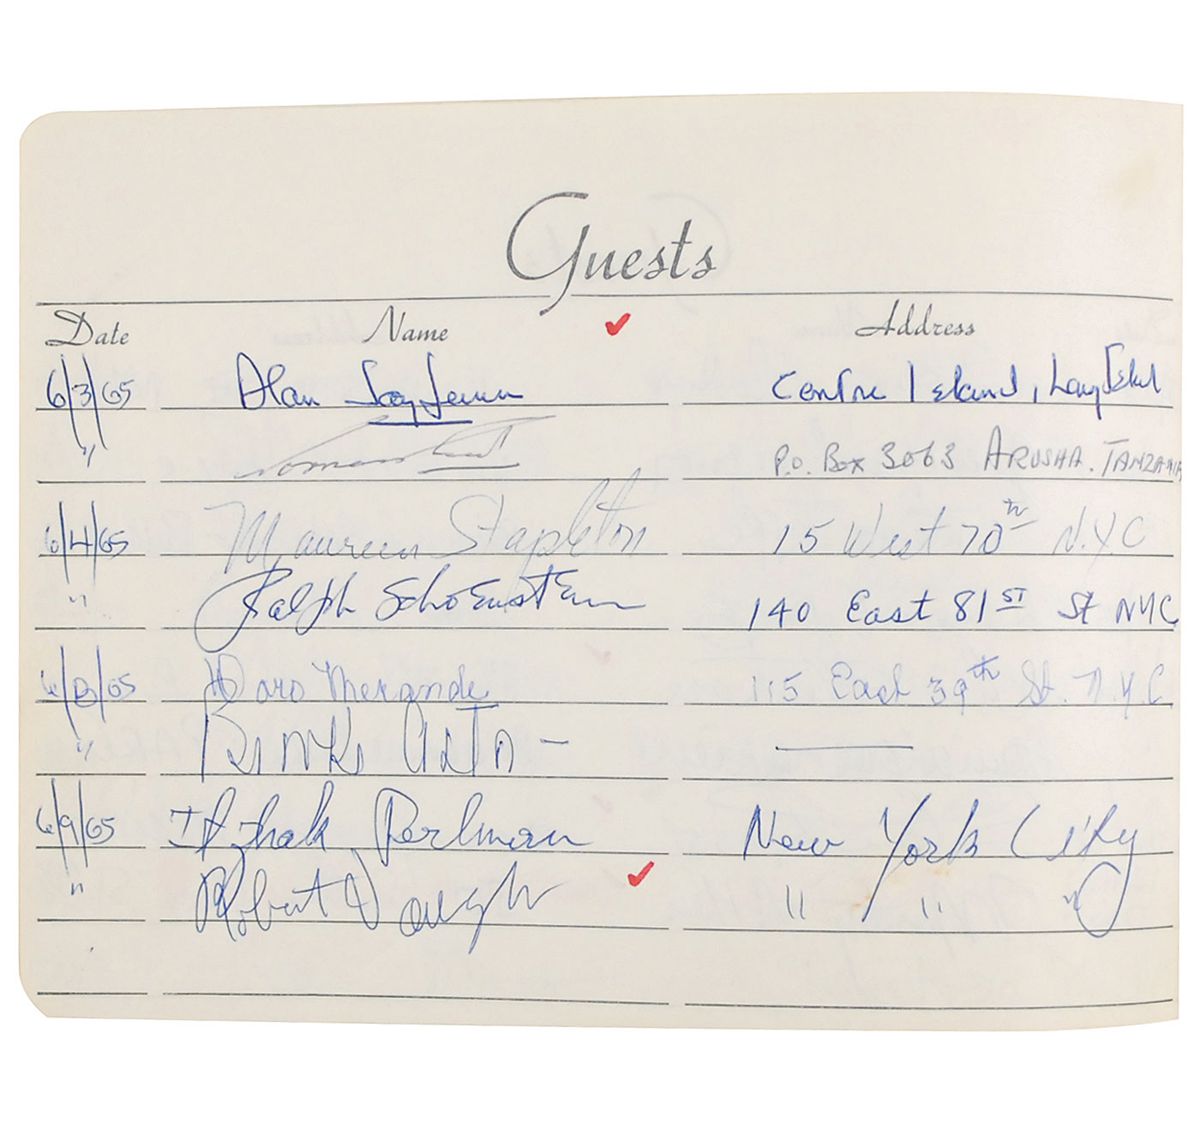 Guests
Date Name Address
6/3/65 Alan Jay Lerner Centre Island, Long Island
" P.O. Box 3063 ARUSHA. TANZANIA
6/4/65 Maureen Stapleton 15 West 70th N.Y.C
" Ralph Schoenstein 140 East 81ST St NYC
6/8/65 Doro Merande 115 East 39th St. N.Y.C
" —
6/9/65 Itzhak Perlman New York City
" Robert Vaughn " " "